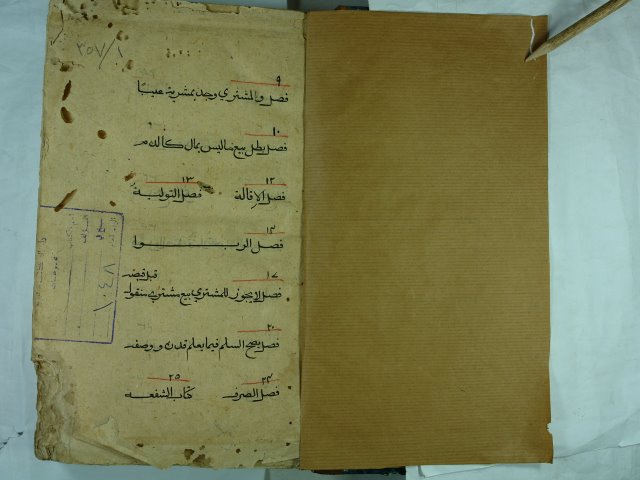 ٢٥٧/١
٩
فصل والمشتري وجد بمشريه عيبا
١٠
فصل بطل بيع ما ليس بمال كالدم
١٢ ١٣
فصل الاقالة فصل التولية
١٣
فصل الربوا
١٧
قبل قبضه
فصل لايجوز للمشتري بيع مشتري منقولا
٢٠
فصل يصح السلم فيما يعلم قدره ووصفه
٢٤ ٢٥
فصل الصرف كتاب الشفعه
١٠٤٨